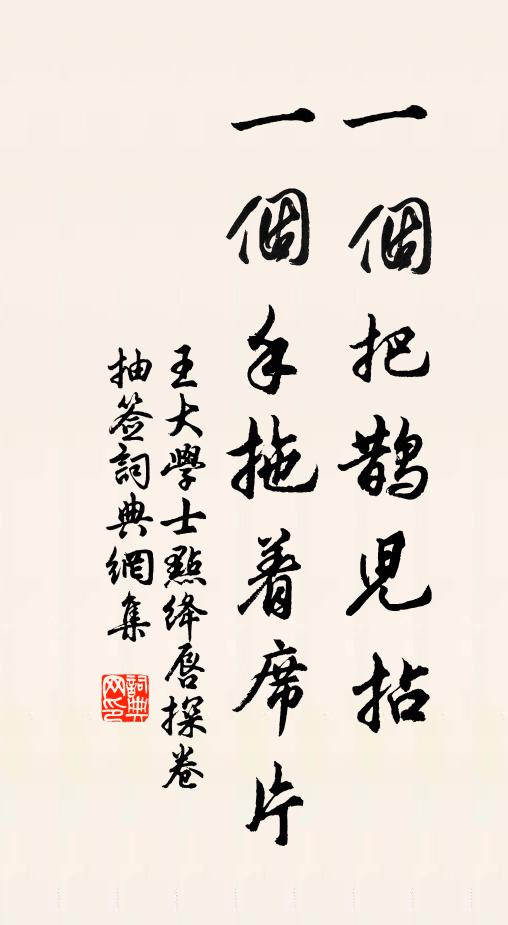 一個把鵲兒拈
一個手拖着席片
王大學士點絳唇探卷
抽签詞典網集
詞典網印